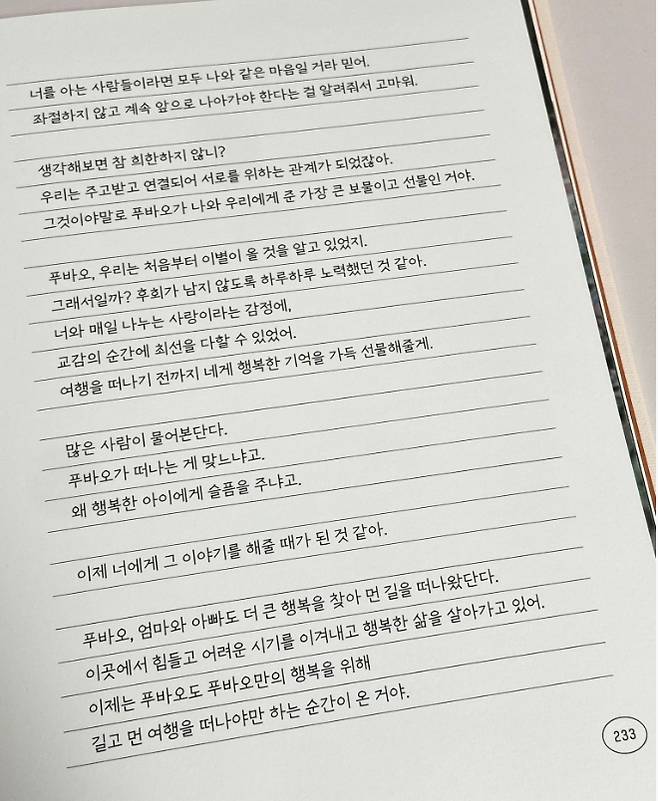 너를 아는 사람들이라면 모두 나와 같은 마음일 거라 믿어.
좌절하지 않고 계속 앞으로 나아가야 한다는 걸 알려줘서 고마워.
생각해보면 참 희한하지 않니?
우리는 주고받고 연결되어 서로를 위하는 관계가 되었잖아.
그것이야말로 푸바오가 나와 우리에게 준 가장 큰 보물이고 선물인 거야.
푸바오, 우리는 처음부터 이별이 올 것을 알고 있었지.
그래서일까? 후회가 남지 않도록 하루하루 노력했던 것 같아.
너와 매일 나누는 사랑이라는 감정에,
교감의 순간에 최선을 다할 수 있었어.
여행을 떠나기 전까지 네게 행복한 기억을 가득 선물해줄게.
많은 사람이 물어본단다.
푸바오가 떠나는 게 맞느냐고.
왜 행복한 아이에게 슬픔을 주냐고.
이제 너에게 그 이야기를 해줄 때가 된 것 같아.
푸바오, 엄마와 아빠도 더 큰 행복을 찾아 먼 길을 떠나왔단다.
이곳에서 힘들고 어려운 시기를 이겨내고 행복한 삶을 살아가고 있어.
이제는 푸바오도 푸바오만의 행복을 위해
길고 먼 여행을 떠나야만 하는 순간이 온 거야.
233